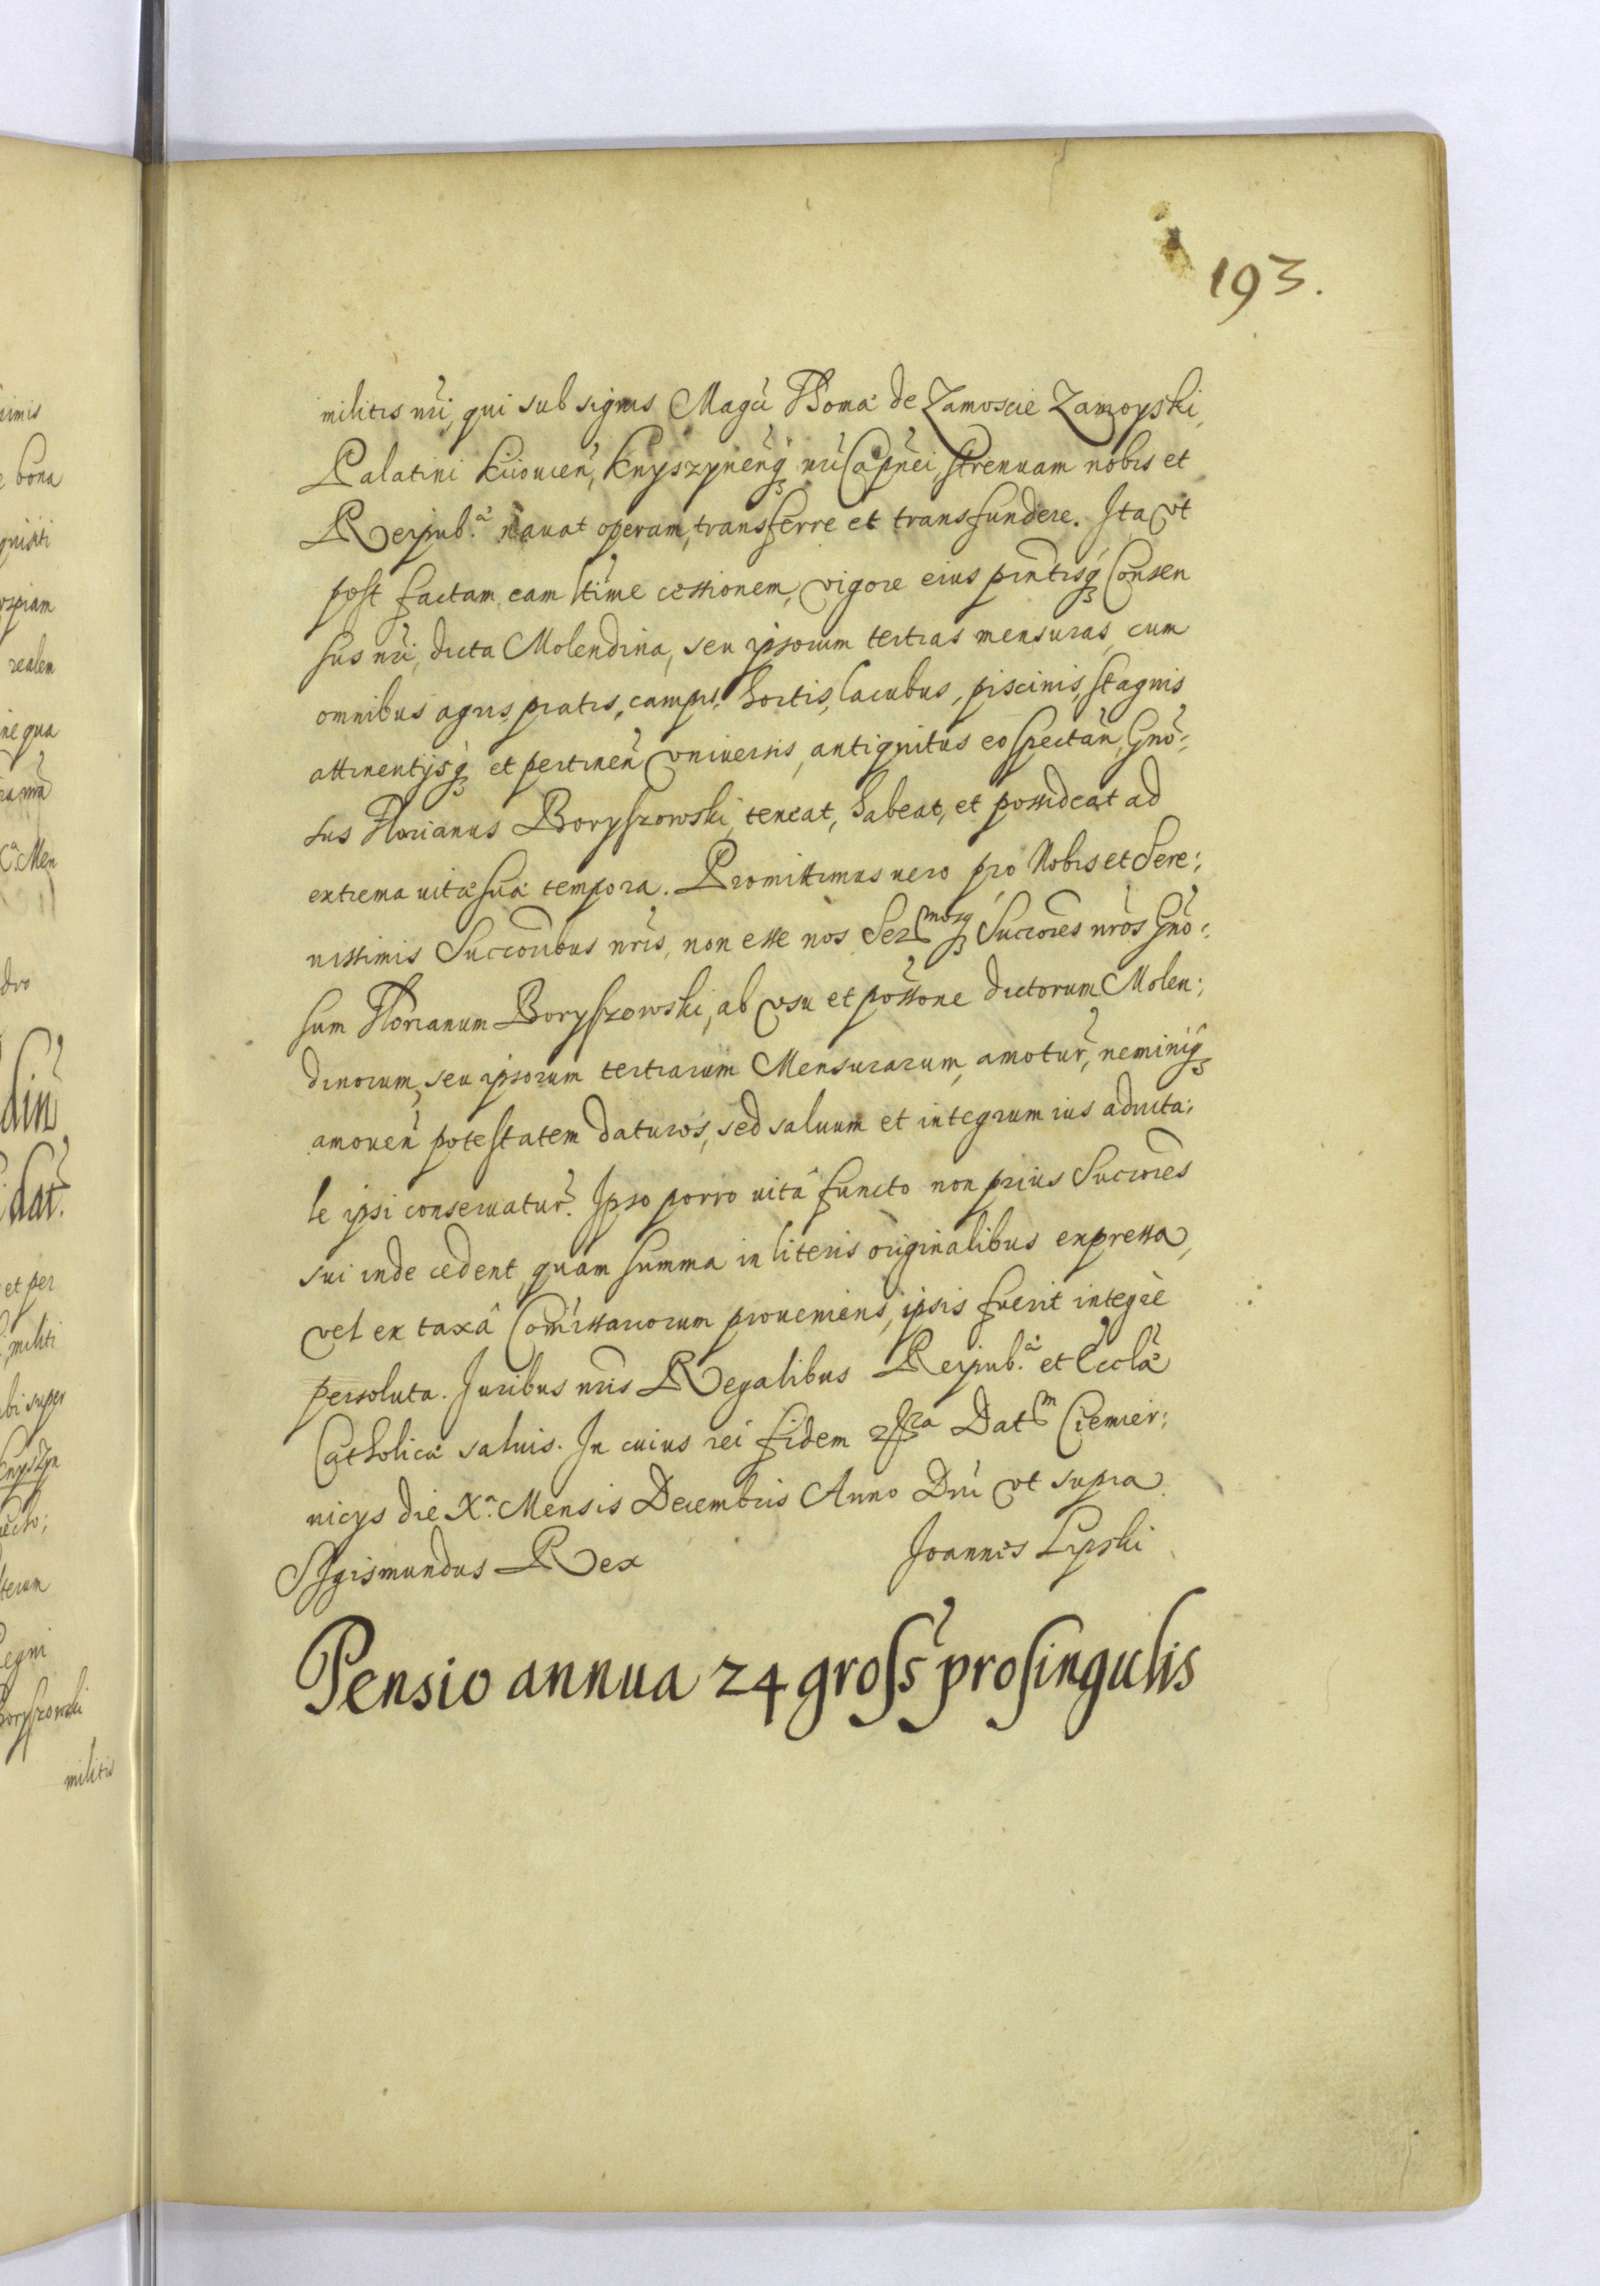 193.
militis nri, qui sub signis Magci Thomæ de Zamoscie Zamoyski,
Palatini Kiiouien, Knyszynenq nri Capnei, strenuam nobis et
Reipub.æ nauat operam, transferre et transfundere. Ita vt
post factam eam ltime cessionem, vigore eius pntisq Consen
sus nri, dicta Molendina, seu ipsorum tertias mensuras, cum
omnibus agris, pratis, campis, hortis, lacubus, piscinis, stagnis
attinentijsq et pertinen vniuersis, antiquitus eo spectan, Gno:
sus Florianus Boryszowski, teneat, habeat, et possideat ad
extrema uitæ suæ tempora. Promittimus uero pro Nobis et Sere:
nissimis Succoribus nris, non esse nos Sermosq Succores nros Gno:
sum Florianum Boryszowski, ab vsu et possone dictorum Molen:
dinorum, seu ipsorum tertiarum Mensurarum, amotur, neminiq
amouen potestatem daturos, sed saluum et integrum ius aduita:
le ipsi conseruatur. Ipso porro uitâ functo non prius Succores
sui inde cedent, quam summa in literis originalibus expressa,
vel ex taxâ Comissariorum proueniens, ipsis fuerit integrè
persoluta. Iuribus nris Regalibus Reipub.æ et Ecclæ
Catholicæ saluis. In cuius rei fidem Dat Ciemier:
nicys die X.a Mensis Decembris Anno Dni vt supra.
Sigismundus Rex Joannes Lipski
Pensio annua 24 gross pro singulis
bona
realem
ne qua
Men
din
dat.
et per
militi
super
Knyszyn
terum
Regni
Boryszowski
militis